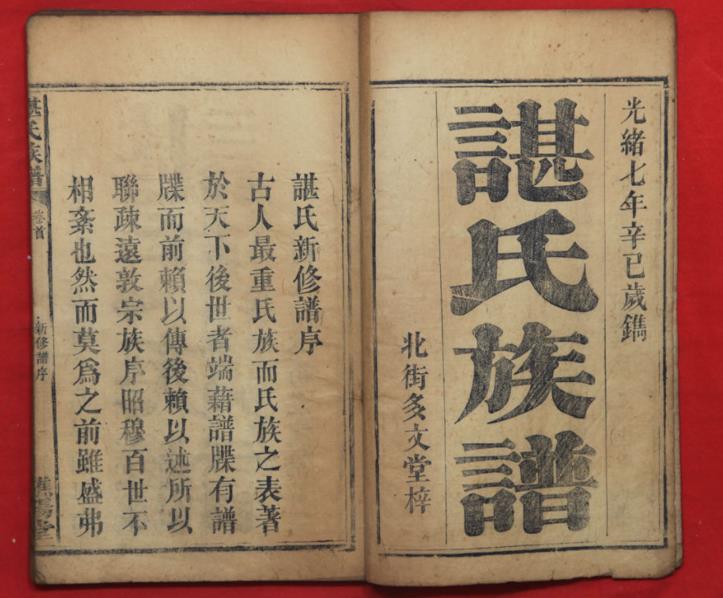 光緒七年辛巳歲鐫
諶氏族譜
北街多文堂梓
諶氏新修譜序
古人最重氏族而氏族之表著
於天下後世者端藉譜牒有譜
牒而前賴以傳後賴以述所以
聯疎遠敦宗族序昭穆百世不
相紊也然而莫爲之前雖盛弗
諶氏族譜
卷首
新修譜序
堂